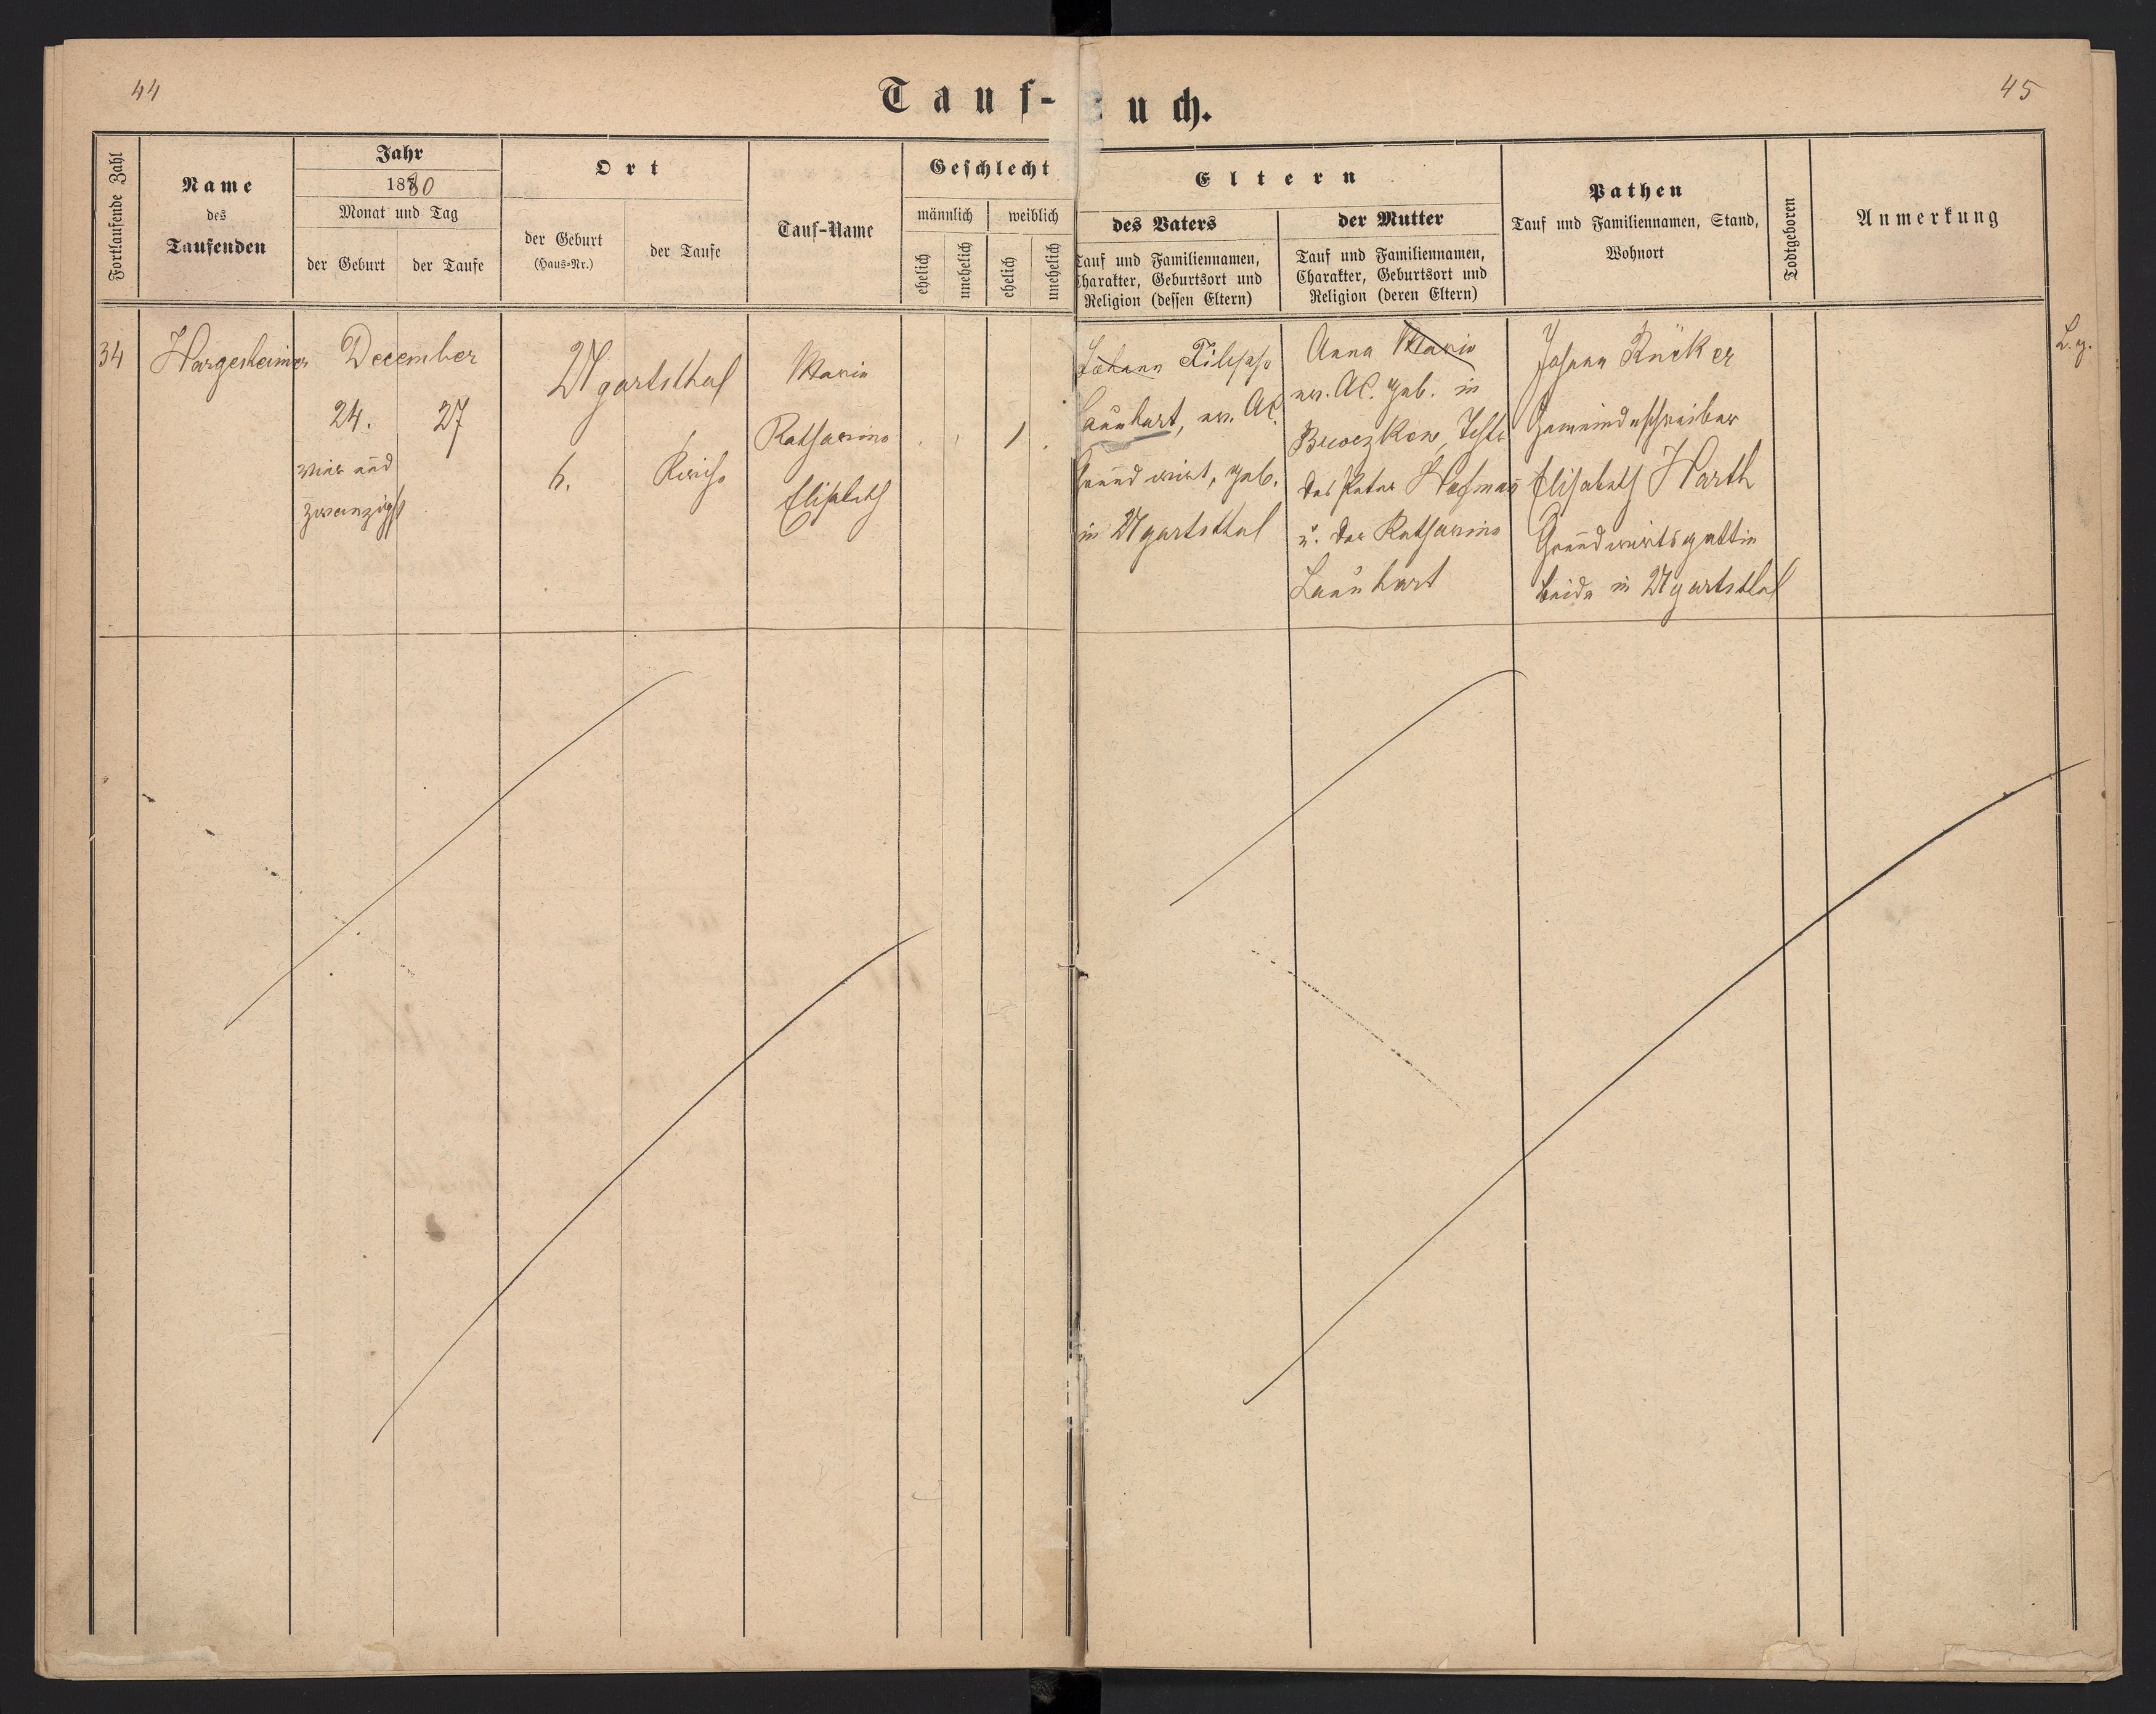 44
45
Tauf-Buch.
Fortlaufende Zahl
Name
des
Taufenden
Jahr
1880
Monat und Tag
der Geburt
der Taufe
Ort
der Geburt
(Haus-Nr.)
der Taufe
Tauf-Name
Geschlecht
männlich
weiblich
ehelich
unehelich
ehelich
unehelich
Eltern
des Vaters
Tauf und Familiennamen,
Charakter, Geburtsort und
Religion (dessen Eltern)
der Mutter
Tauf und Familiennamen,
Charakter, Geburtsort und
Religion (deren Eltern)
Pathen
Tauf und Familiennamen, Stand,
Wohnort
Todtgeboren
Anmerkung
34
Hargesheimer
December
24.
27
vier und
zwanzigst
Ugartsthal
h.
Kirche
Maria
Katharina
Elisabeth
1
Johann Filipp
Launhart, ev. AC.
Grundwirt, geb.
in Ugartsthal
Anna Maria
ev. AC. geb. in
Broczkow, Tochter
des Peter Hofmann
u. der Katharina
Launhart
Johann Rücker
Gemeindeschreiber
Elisabeth Harth
Grundwirtsgattin
beide in Ugartsthal